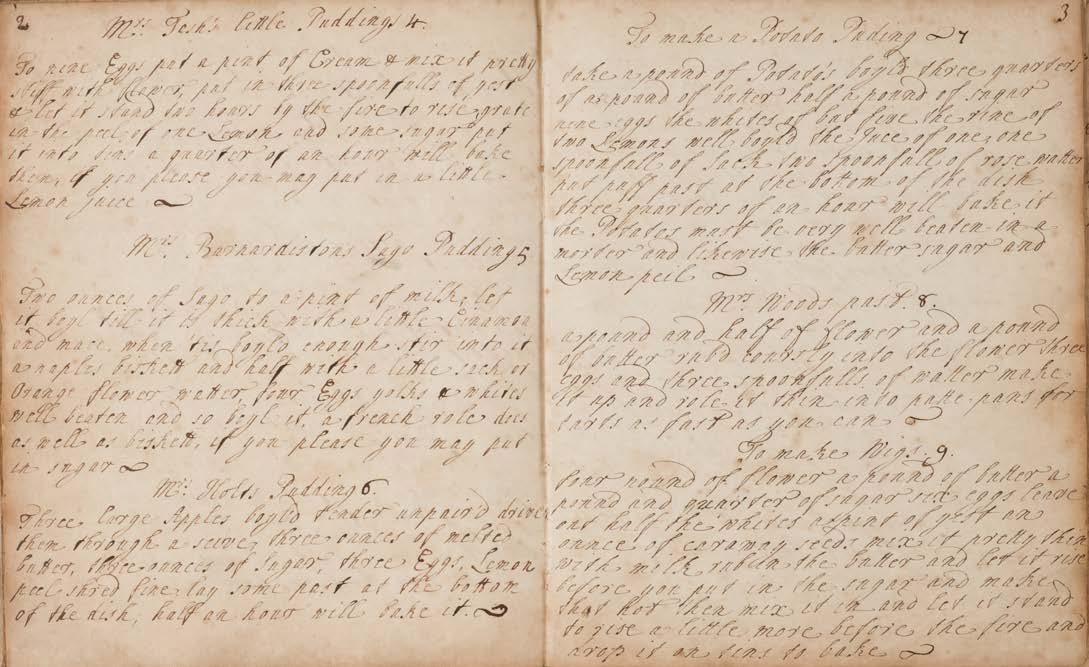 2
Mrs: Tesh's little Puddings 4.
To nine Eggs put a pint of Cream & mix it pretty
stiff with flower, put in three spoonfulls of yest
& let it stand two hours by the fire to rise, grate
in the peel of one Lemon and some sugar put
it into tins a quarter of an hour will bake
them, if you please you may put in a little
Lemon juice
Mrs Barnardistons Sago Pudding 5
Two ounces of Sago, to a pint of milk, let
it boyl till it is thick with a little Cinamon
and mace, when tis boyld enough stir into it
a naples biskett and half with a little sack, or
Orange flower watter, four Eggs yolks & whites
well beaten and so boyl it, a french role does
as well as biskett, if you please you may put
in sugar
Mrs: Holts Pudding 6.
Three large Apples boyld tender unpair'd drive
them through a seive, three ounces of melted
butter, three ounces of Sugar, three Eggs, Lemon
peel shred fine, lay some past at the bottom
of the dish, half an hour will bake it.
3
To make a Potato Puding 7
take a pound of Potato's boyld, three quarters
of a pound of butter half a pound of sugar
nine eggs the whites of but five the rine of
two Lemons well boyld the Juce of one, one
spoonfull of sack two spoonfull of rose watter
put puff past at the bottom of the dish
three quarters of an hour will bake it
the Potatos must be very well beaten in a
morter and likewise the butter sugar and
Lemon peil
Mrs Woods past. 8.
a pound and half of flower and a pound
of butter rub'd coursly into the flower three
eggs and three spoonfulls of watter make
it up and role it thin into patte pans for
tarts as fast as you can
To make Wigs. 9.
four pound of flower a pound of butter a
pound and quarter of sugar six eggs leave
out half the whites a pint of yest an
ounce of caraway seeds mix it pretty thin
with milk rub in the butter and let it rise
before you put in the sugar and make
that hot then mix it in and let it stand
to rise a little more before the fire and
drop it on tins to bake